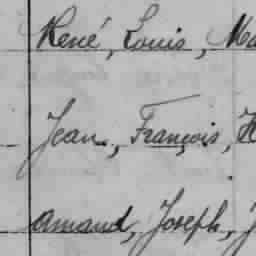 René, Louis, Ma
Jean, François, H
Amand, Joseph, J